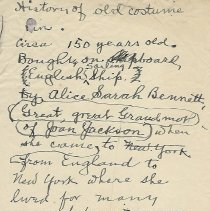 History of old costume
pin.
Circa 150 years old.
Bought on shipboard
(English Sailing Ship)
by Alice Sarah Bennett
(Great great Grandmother
of Joan Jackson) when
she came to New York
from England to
New York where she
lived for many